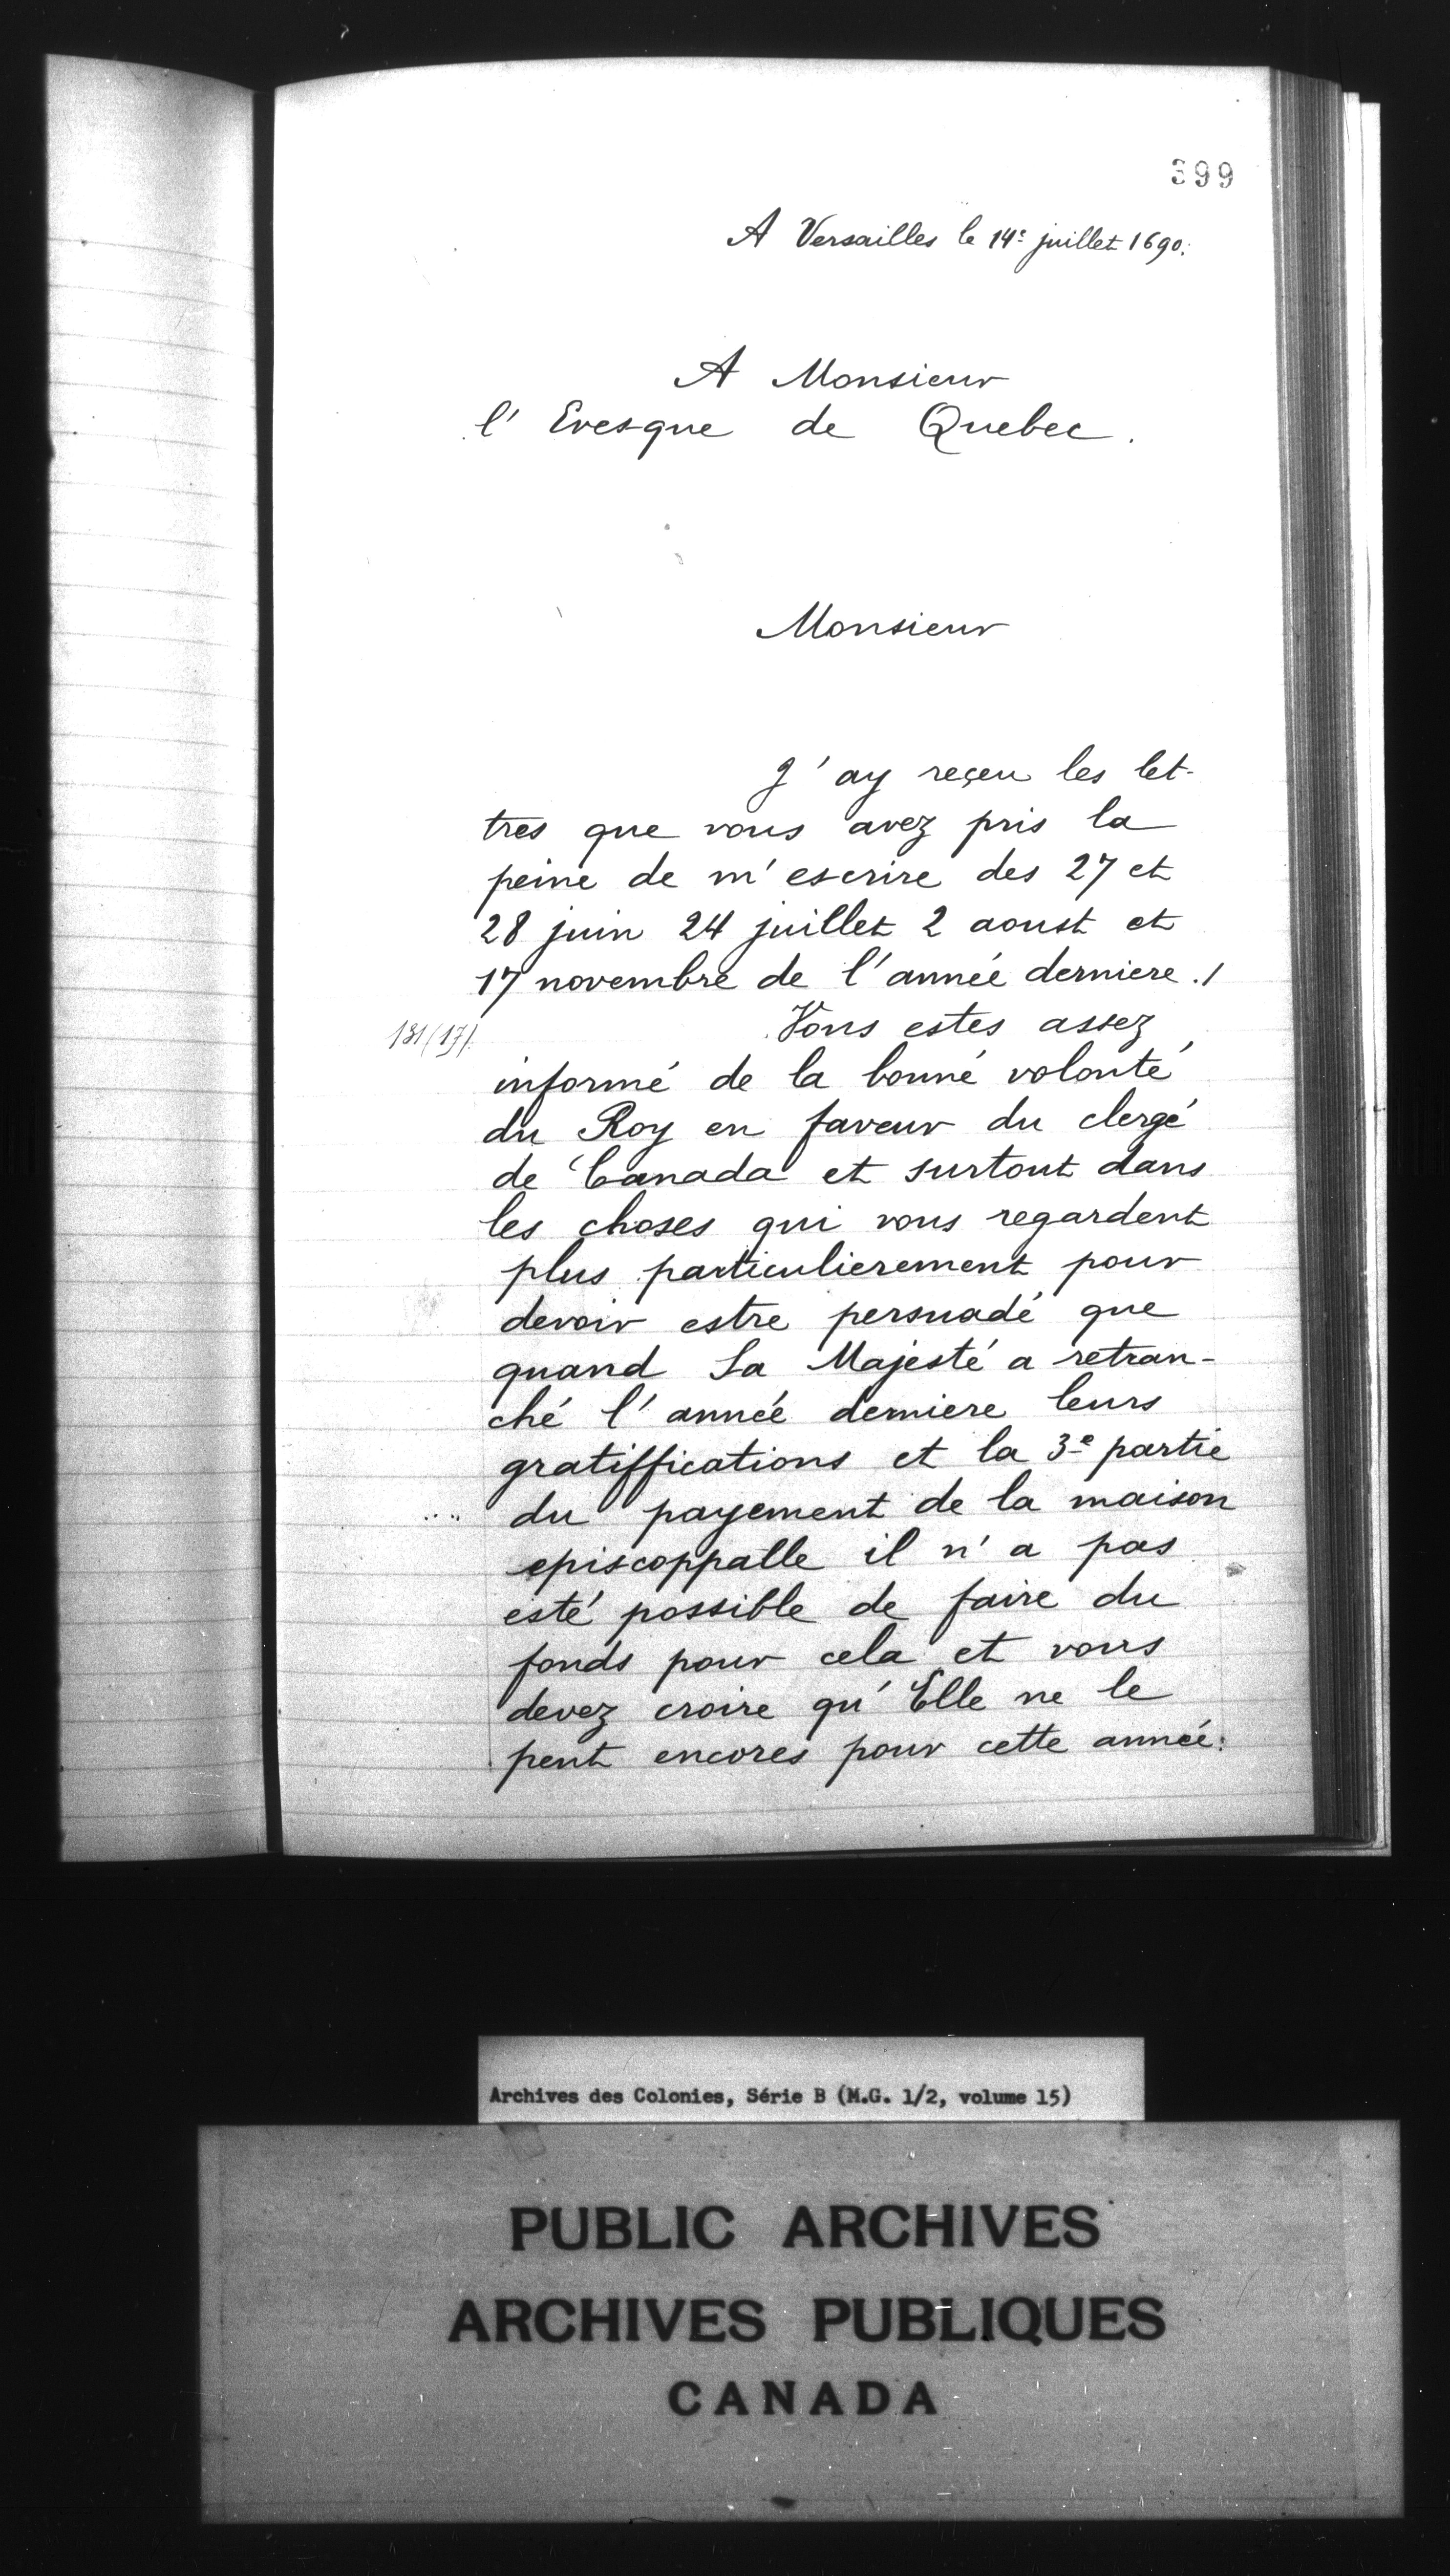 399
A Versailles le 14e juillet 1690.
A Monsieur
l' Evesque de Quebec.
Monsieur
J'ay reçeu les let-
tres que vous avez pris la
peine de m'escrire des 27 et
28 juin 24 juillet 2 aoust et
17 novembre de l'année derniere ./
131(17)
Vous estes assez
informé de la bonné volonté
du Roy en faveur du clergé
de Canada et surtout dans
les choses qui vous regardent
plus particulierement pour
devoir estre persuadé que
quand Sa Majesté a retran-
ché l'année derniere leurs
gratiffications et la 3e partie
du payement de la maison
episcoppalle il n'a pas
esté possible de faire du
fonds pour cela et vous
devez croire qu'Elle ne le
peut encores pour cette année.
Archives des Colonies, Série B (M.G. 1/2, volume 15)
PUBLIC ARCHIVES
ARCHIVES PUBLIQUES
CANADA